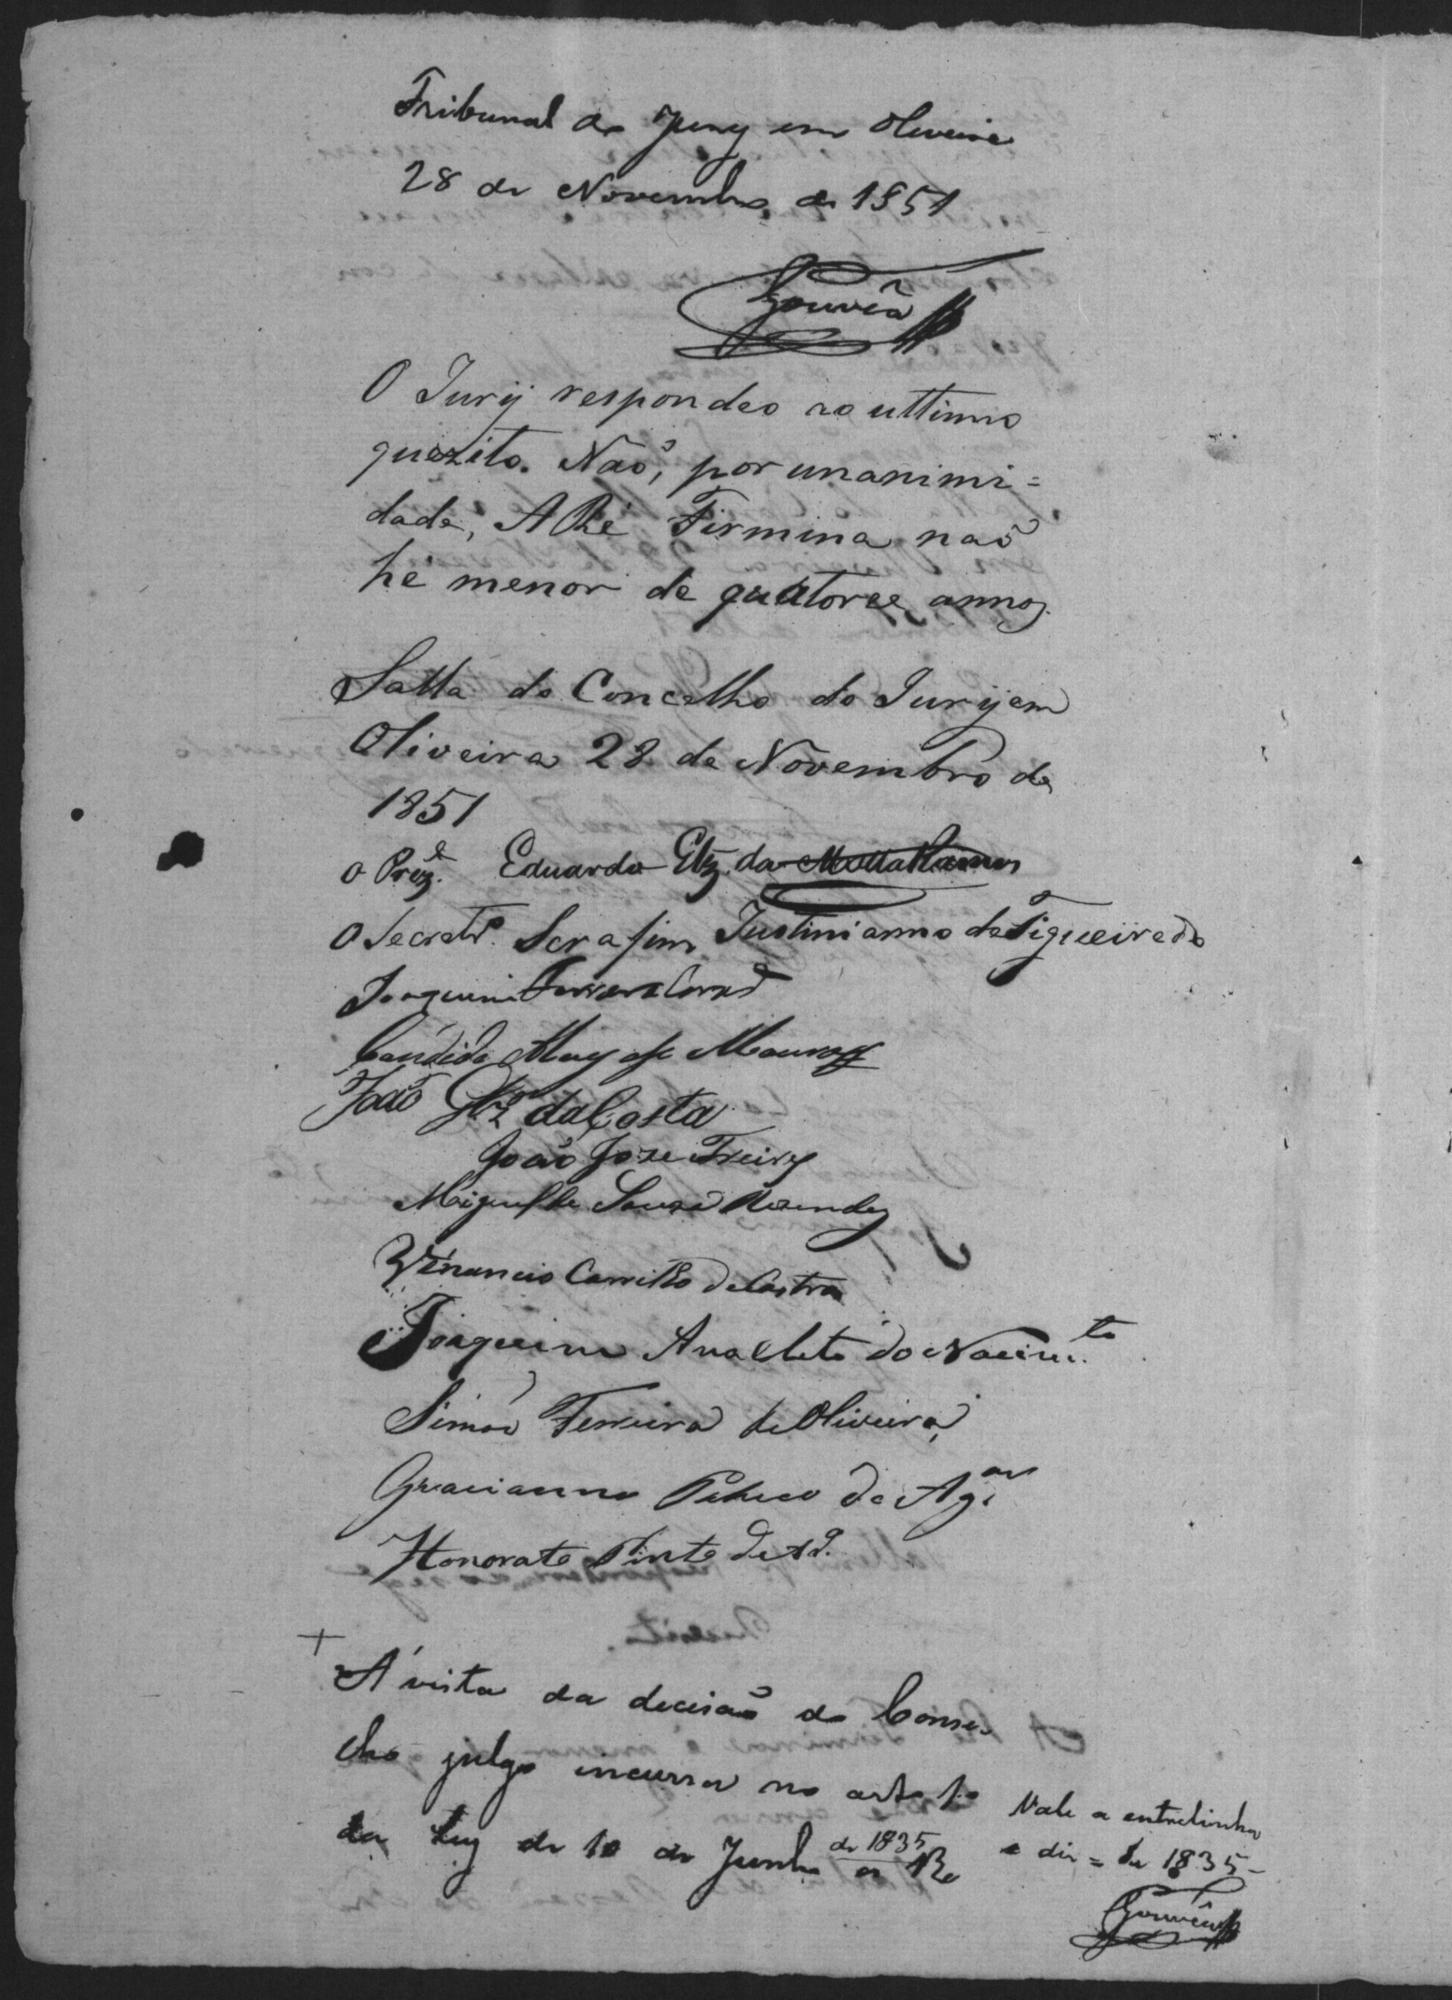 Tribunal do Jury em Oliveira
28 de Novembro de 1851
Gouvêa
O Jurij respondeo ao ulttimo
quezito. Naõ, por unanimi=
dade, A Ré Firmina naõ
hé menor de quatorze annos.
Salla do Concelho do Jurij em
Oliveira 28 de Novembro de
1851
O Prez.e Eduardo Glz. da Motta Ramos
O Secretr.o Serafim Justinianno de Figueiredo
Joaquim Ferreira
Candido de Moraes
Joaõ Glz da Costa
João Joze Freire
Miguel de Souza Rezende
Venancio Carrilho de Castro
Joaquim Anacleto do Nacim.to
Simaõ Ferreira de Oliveira
Gracianno de Ag.ar
Honorato Pinto de
A' vista da decisaõ do Conse-
lho julgo incursa no arto 1.o
da Ley de 10 de Junho de 1835 a Ré
Vale a entrelinha
e diz = de 1835 -
Gouvêa